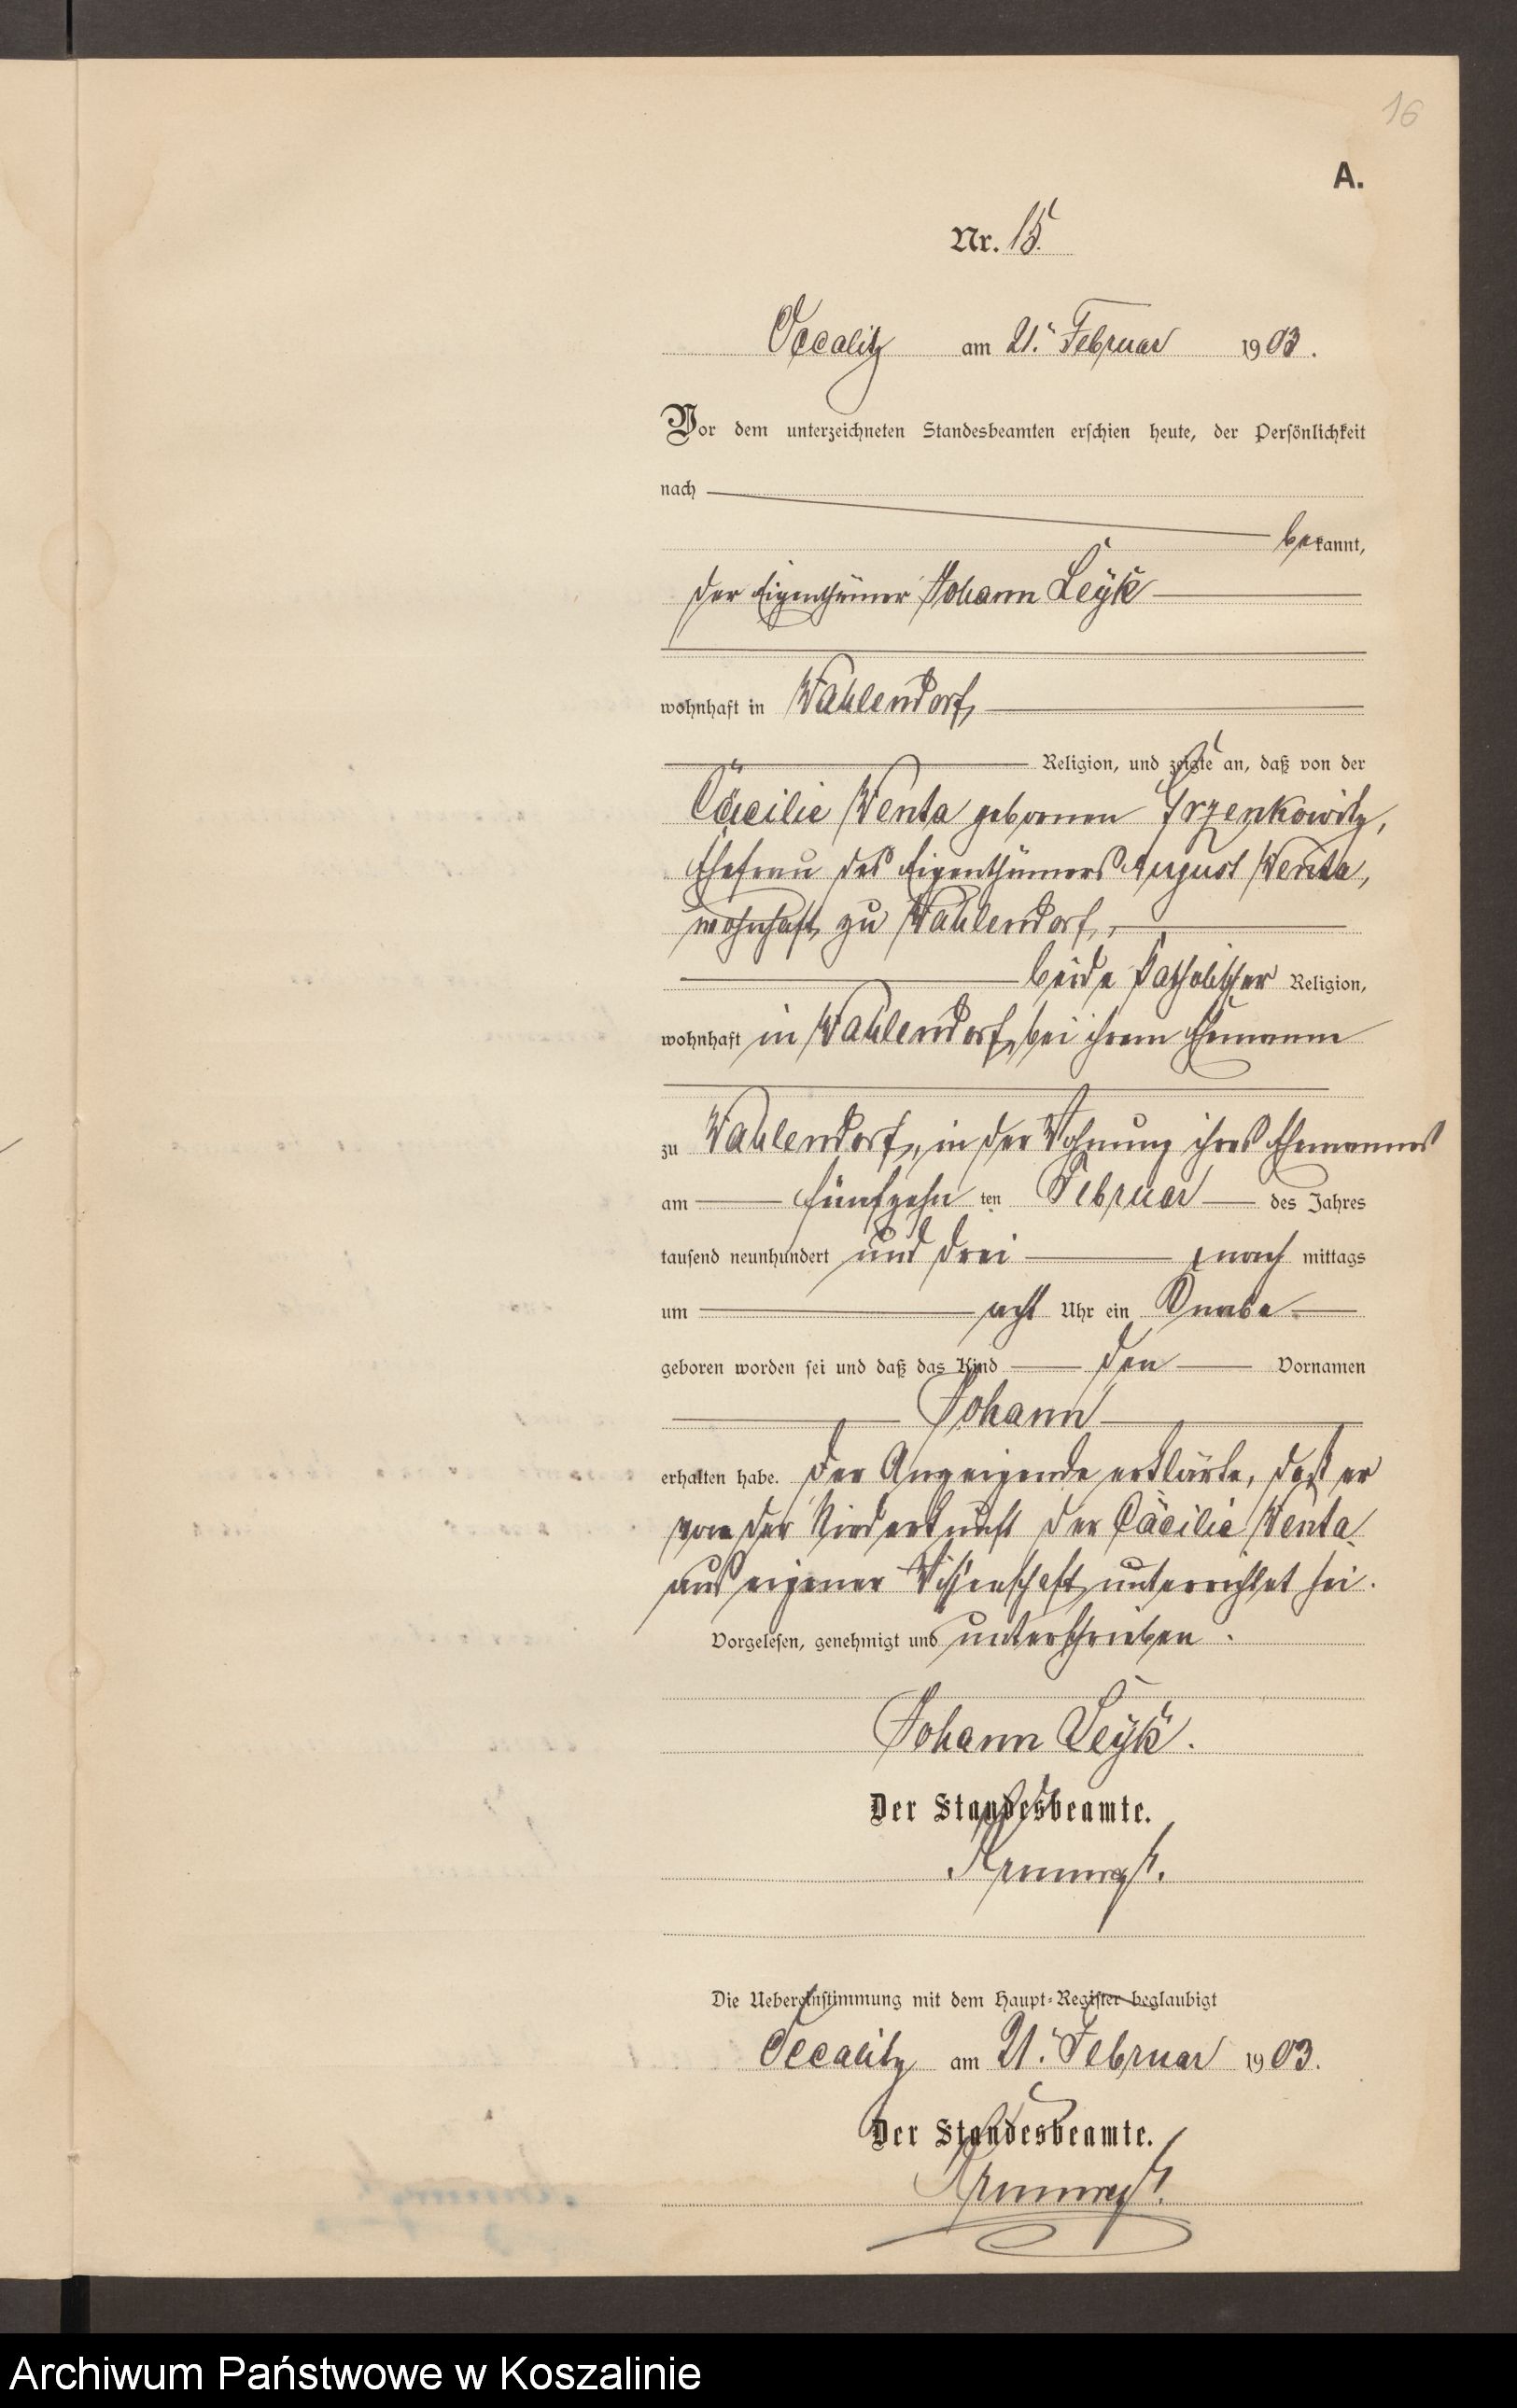 16
A.
Nr. 15.
Occalitz am 21. Februar 1903.
Vor dem unterzeichneten Standesbeamten erschien heute, der Persönlichkeit
nach
bekannt,
der Eigenthümer Johann Leyk
wohnhaft in Wahlendorf,
Religion, und zeigte an, daß von der
Cäcilie Wenta geborenen Grzenkowitz,
Ehefrau des Eigenthümers August Wenta,
wohnhaft zu Wahlendorf,
beide katholischer Religion,
wohnhaft in Wahlendorf, bei ihrem Ehemanne
zu Wahlendorf, in der Wohnung ihres Ehemannes
am fünfzehn ten Februar des Jahres
tausend neunhundert und drei nach mittags
um acht Uhr ein Knabe
geboren worden sei und daß das Kind den Vornamen
Johann
erhalten habe. Der Anzeigende erklärte, daß er
von der Niederkunft der Cäcilie Wenta
aus eigener Wissenschaft unterrichtet sei.
Vorgelesen, genehmigt und unterschrieben.
Johann Leyk.
Der Standesbeamte.
Die Uebereinstimmung mit dem Haupt-Register beglaubigt
Occalitz am 21. Februar 1903.
Der Standesbeamte.
Archiwum Państwowe w Koszalinie